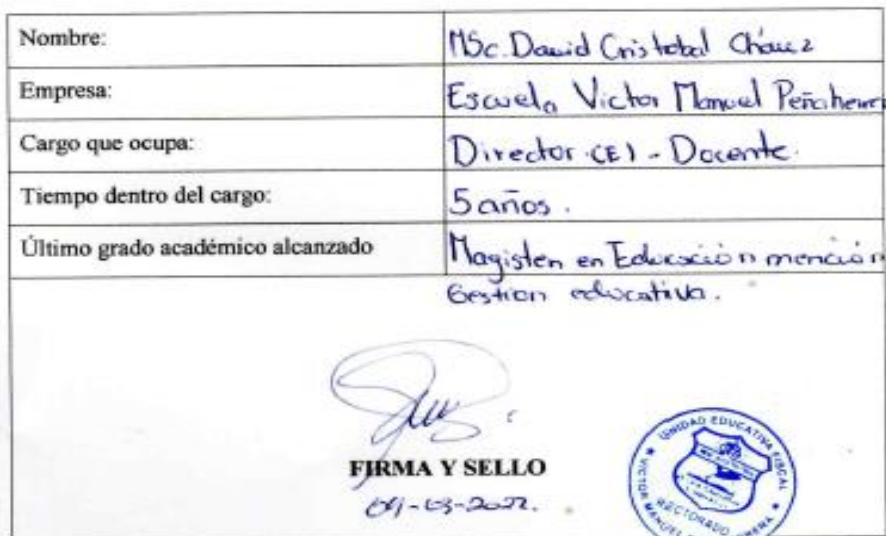 Nombre: MSc. David Cristobal Chávez
Empresa: Escuela Victor Manuel Peñaherre
Cargo que ocupa: Director (E) - Docente.
Tiempo dentro del cargo: 5 años.
Último grado académico alcanzado Magister en Educación mención
Gestion educativa.
FIRMA Y SELLO
UNIDAD EDUCATIVA FISCAL
VICTOR MANUEL
RECTORADO